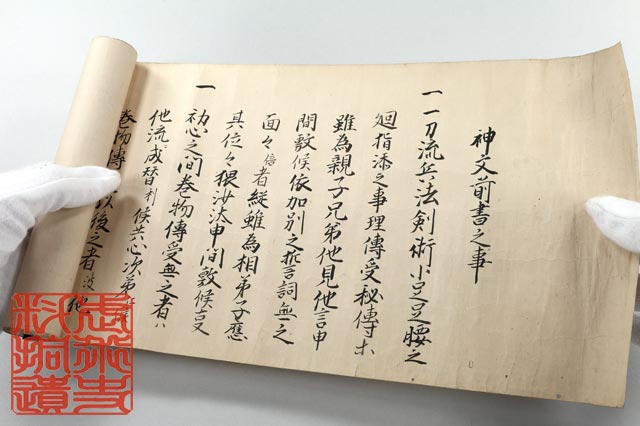 神文前書之事
一 一刀流兵法劍術小足足腰之
廻指添之事理傳受秘傳
雖為親子兄弟他見他言申
間敷候依加別之誓詞無之
面々倍者縦雖為相弟子應
其位々猥沙汰申間敷候事
一 初心之間巻物傳受無之者ハ
他流成替利候共心次第
巻物傳 以後之者 他